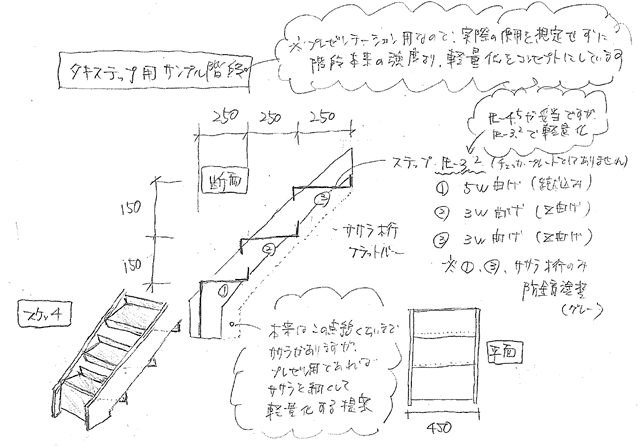 ※プレゼンテーション用なので、実際の使用を想定せずに
階段本来の強度より、軽量化をコンセプトにしています
タキステップ用サンプル階段
250 250 250
PL-4.5が妥当ですが
PL-3.2で軽量化
断面
ステップ PL-3.2 (チェッカープレートではありません)
① 5W曲げ (絞込み)
② 3W曲げ (Z曲げ)
③ 3W曲げ (Z曲げ)
※①、③、ササラ桁のみ
防錆塗装
(グレー)
150
150
ササラ桁
フラットバー
①
②
③
本来はこの点線くらいまで
ササラがありますが、
プレゼン用であれば
ササラを細くして
軽量化する提案
平面
450